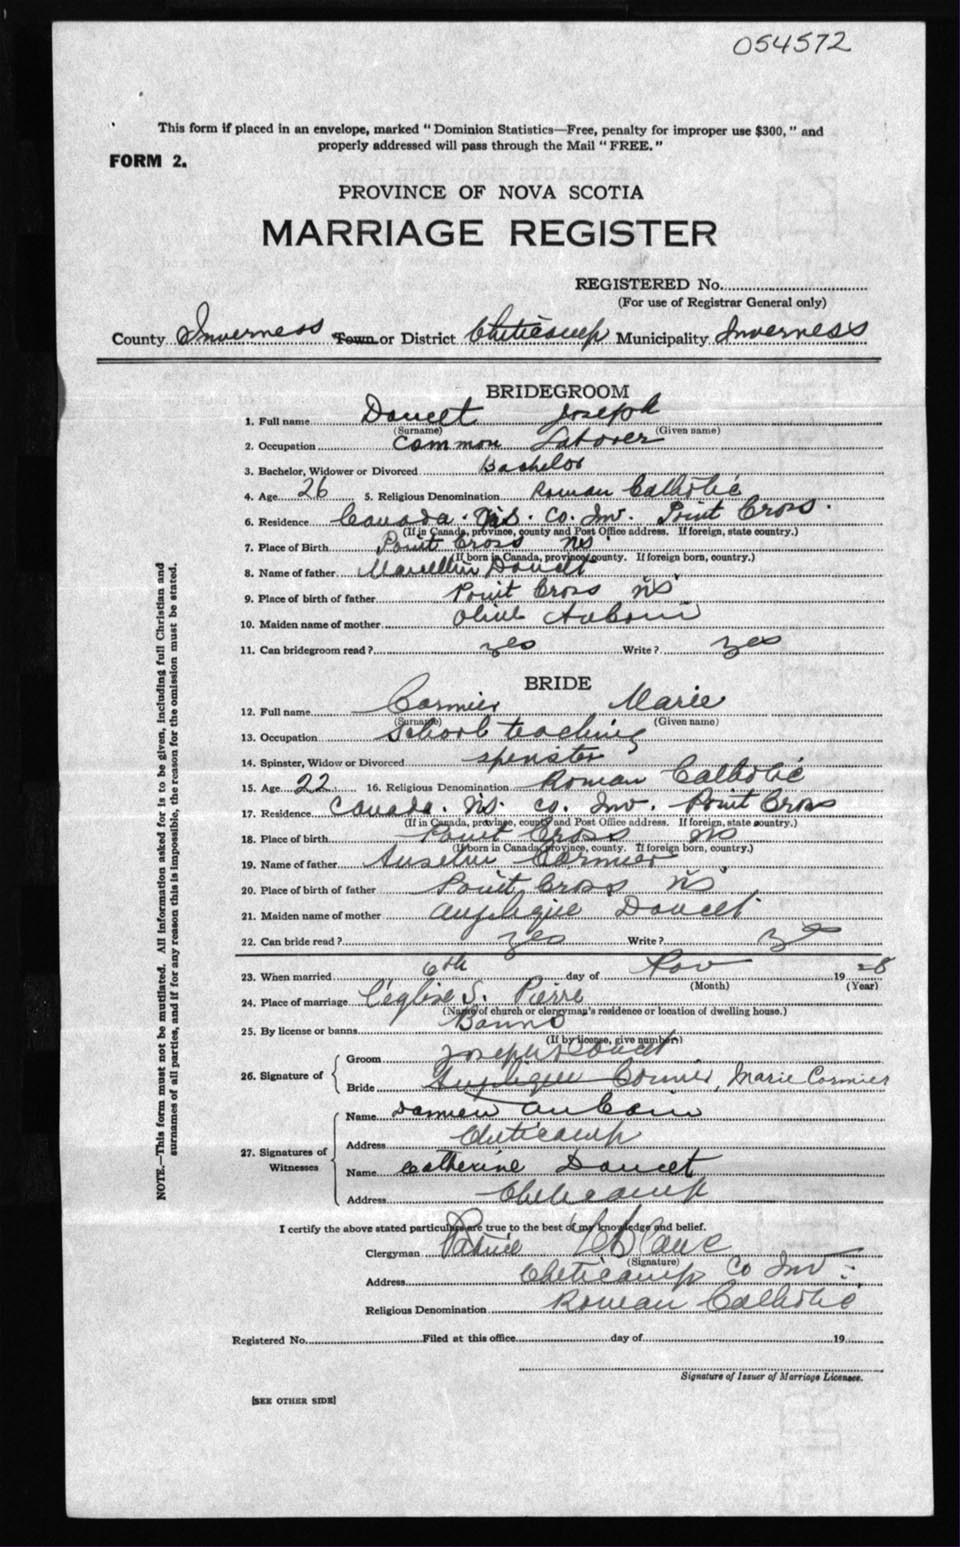 054572
This form if placed in an envelope, marked "Dominion Statistics—Free, penalty for improper use $300," and
properly addressed will pass through the Mail "FREE."
FORM 2.
PROVINCE OF NOVA SCOTIA
MARRIAGE REGISTER
REGISTERED No.
(For use of Registrar General only)
County Inverness Town or District Cheticamp Municipality Inverness
BRIDEGROOM
1. Full name Doucet Joseph
(Surname) (Given name)
2. Occupation Common Laborer
3. Bachelor, Widower or Divorced Bachelor
4. Age 26 5. Religious Denomination Roman Catholic
6. Residence Canada. N.S. Co. Inv. Point Cross.
(If in Canada, province, county and Post Office address. If foreign, state country.)
7. Place of Birth Point Cross NS
(If born in Canada, province, county. If foreign born, country.)
8. Name of father Marcellin Doucet
9. Place of birth of father Point Cross NS
10. Maiden name of mother Olive Auboin
11. Can bridegroom read? yes Write? yes
BRIDE
12. Full name Cormier Marie
(Surname) (Given name)
13. Occupation School teaching
14. Spinster, Widow or Divorced spinster
15. Age 22 16. Religious Denomination Roman Catholic
17. Residence Canada. N.S. Co. Inv. Point Cross
(If in Canada, province, county and Post Office address. If foreign, state country.)
18. Place of birth Point Cross NS
(If born in Canada, province, county. If foreign born, country.)
19. Name of father Anselm Cormier
20. Place of birth of father Point Cross NS
21. Maiden name of mother Doucet
22. Can bride read? yes Write?
23. When married 6th day of Nov 19 28
(Month) (Year)
24. Place of marriage L'église S. Pierre
(Name of church or clergyman's residence or location of dwelling house.)
25. By license or banns Banns
(If by license, give number)
26. Signature of
Groom Joseph Doucet
Bride Cormier, Marie Cormier
27. Signatures of Witnesses
Name Damien Aucoin
Address Cheticamp
Name Catherine Doucet
Address Cheticamp
I certify the above stated particulars are true to the best of my knowledge and belief.
Clergyman Patrice LeBlanc
(Signature)
Address Cheticamp Co Inv
Religious Denomination Roman Catholic
Registered No. Filed at this office day of 19
Signature of Issuer of Marriage Licenses.
[SEE OTHER SIDE]
NOTE.—This form must not be mutilated. All information asked for is to be given, including full Christian and
surnames of all parties, and if for any reason this is impossible, the reason for the omission must be stated.